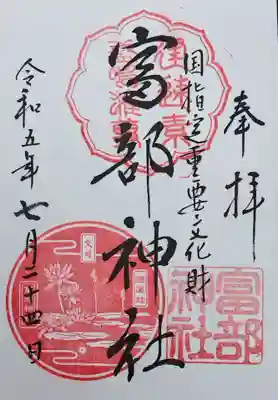 奉拝
国指定重要文化財
富部神社
令和五年七月二十四日
富部神社